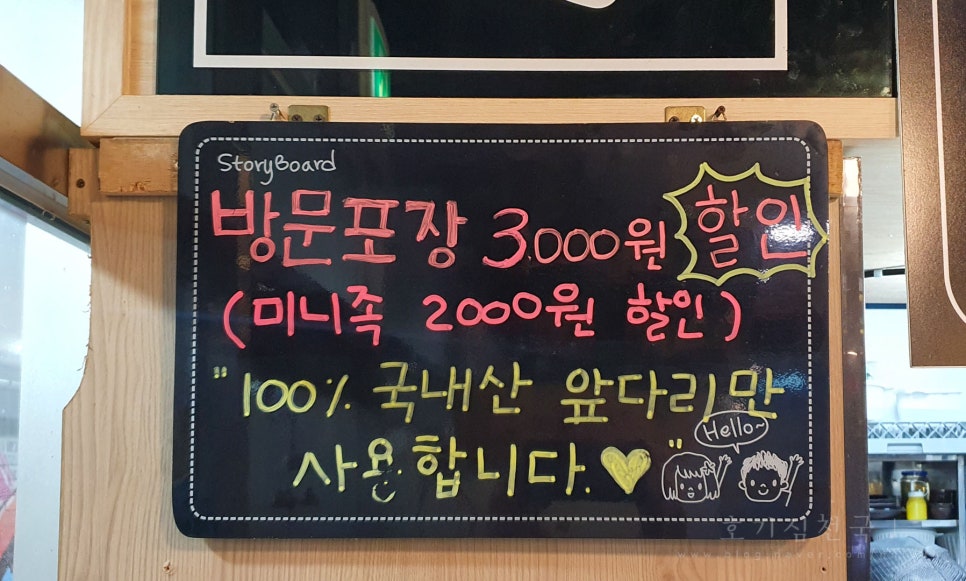 StoryBoard
방문포장 3.000원 할인
(미니족 2000원 할인)
"100% 국내산 앞다리만
사용합니다.♥"
Hello~
호기심천국